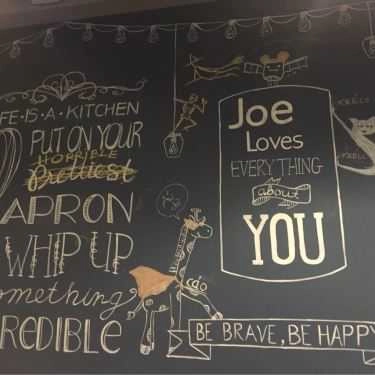 FE·IS·A·KITCHEN
PUT ON YOUR
HORRIBLE
Prettiest
APRON
WHIP UP
omething
REDIBLE
Joe
Loves
EVERYTHING
about
YOU
cdo
BE BRAVE, BE HAPPY